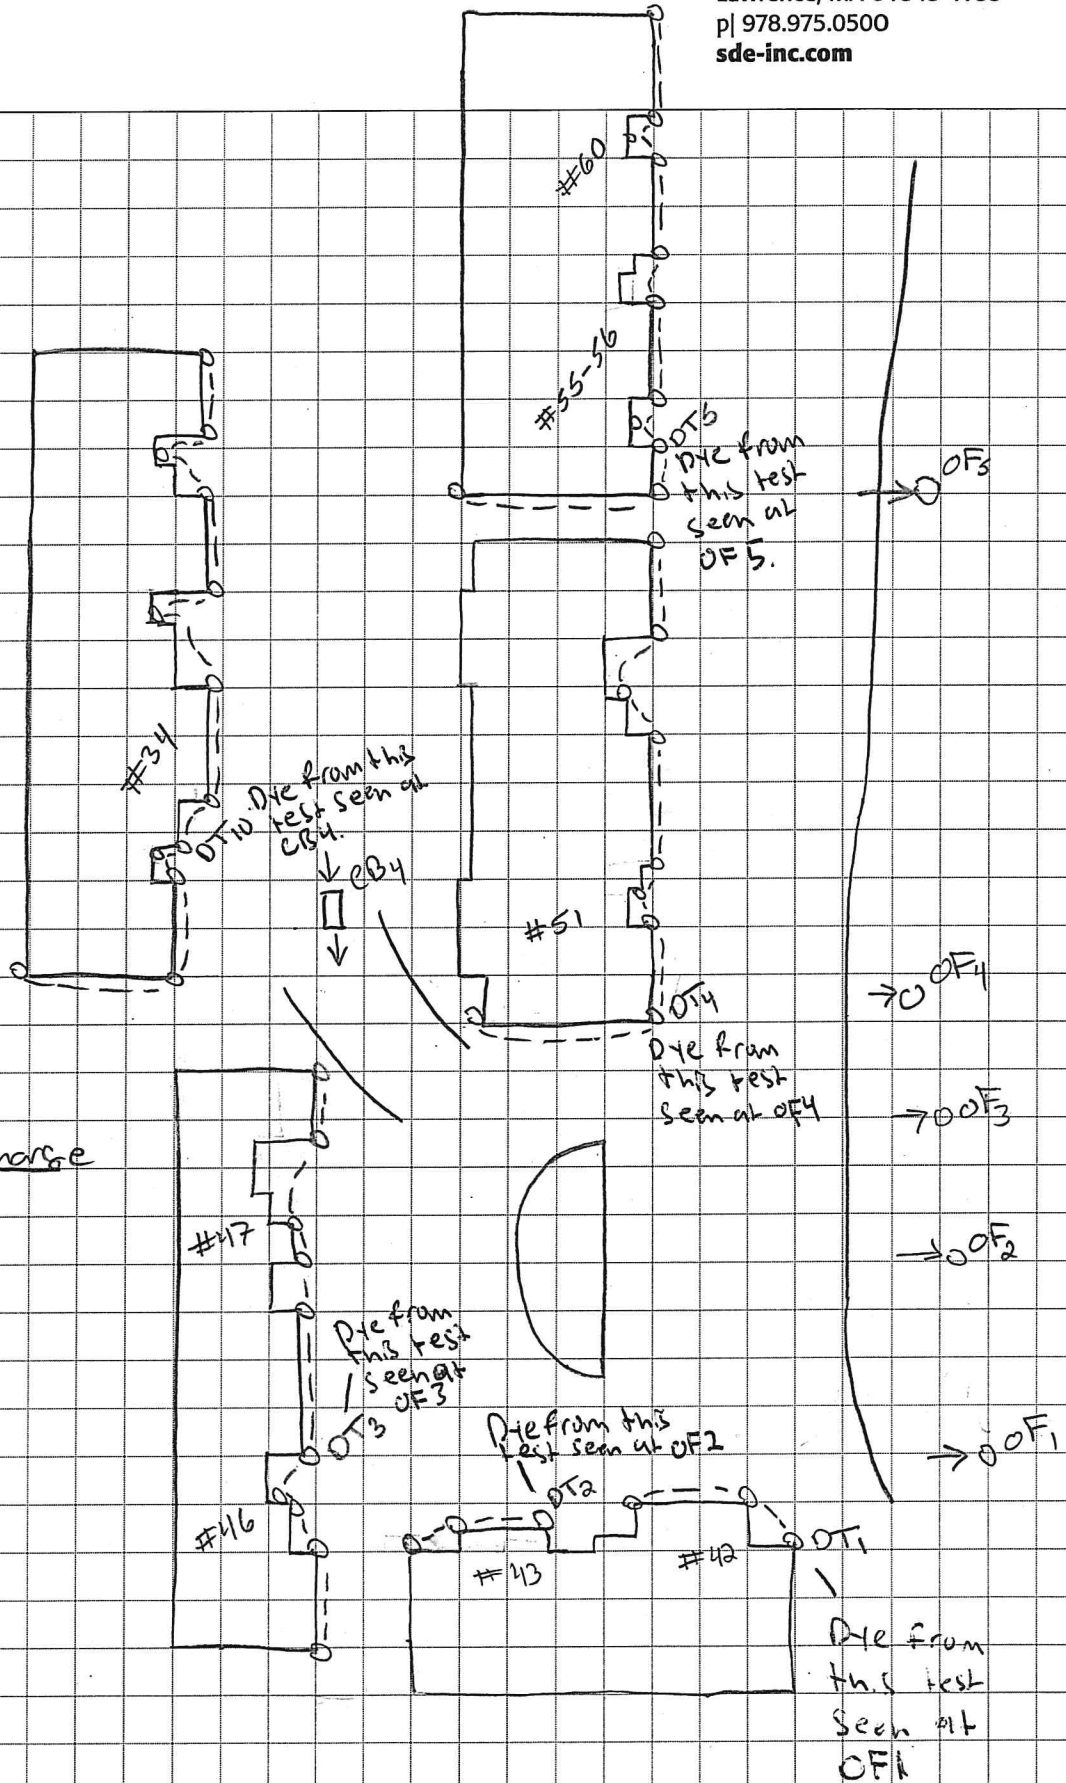 p| 978.975.0500
sde-inc.com
#60
#55-56
DT5
Dye from
this test
seen at
OF5.
OF5
#34
DT10
Dye from this
test seen at
CB4.
CB4
#51
OF4
DT4
Dye from
this test
seen at OF4
OF3
#47
OF2
Dye from
this test
seen at
OF3
DT3
Dye from this
test seen at OF2
DT2
OF1
#46
#43
#42
DT1
Dye from
this test
seen at
OF1